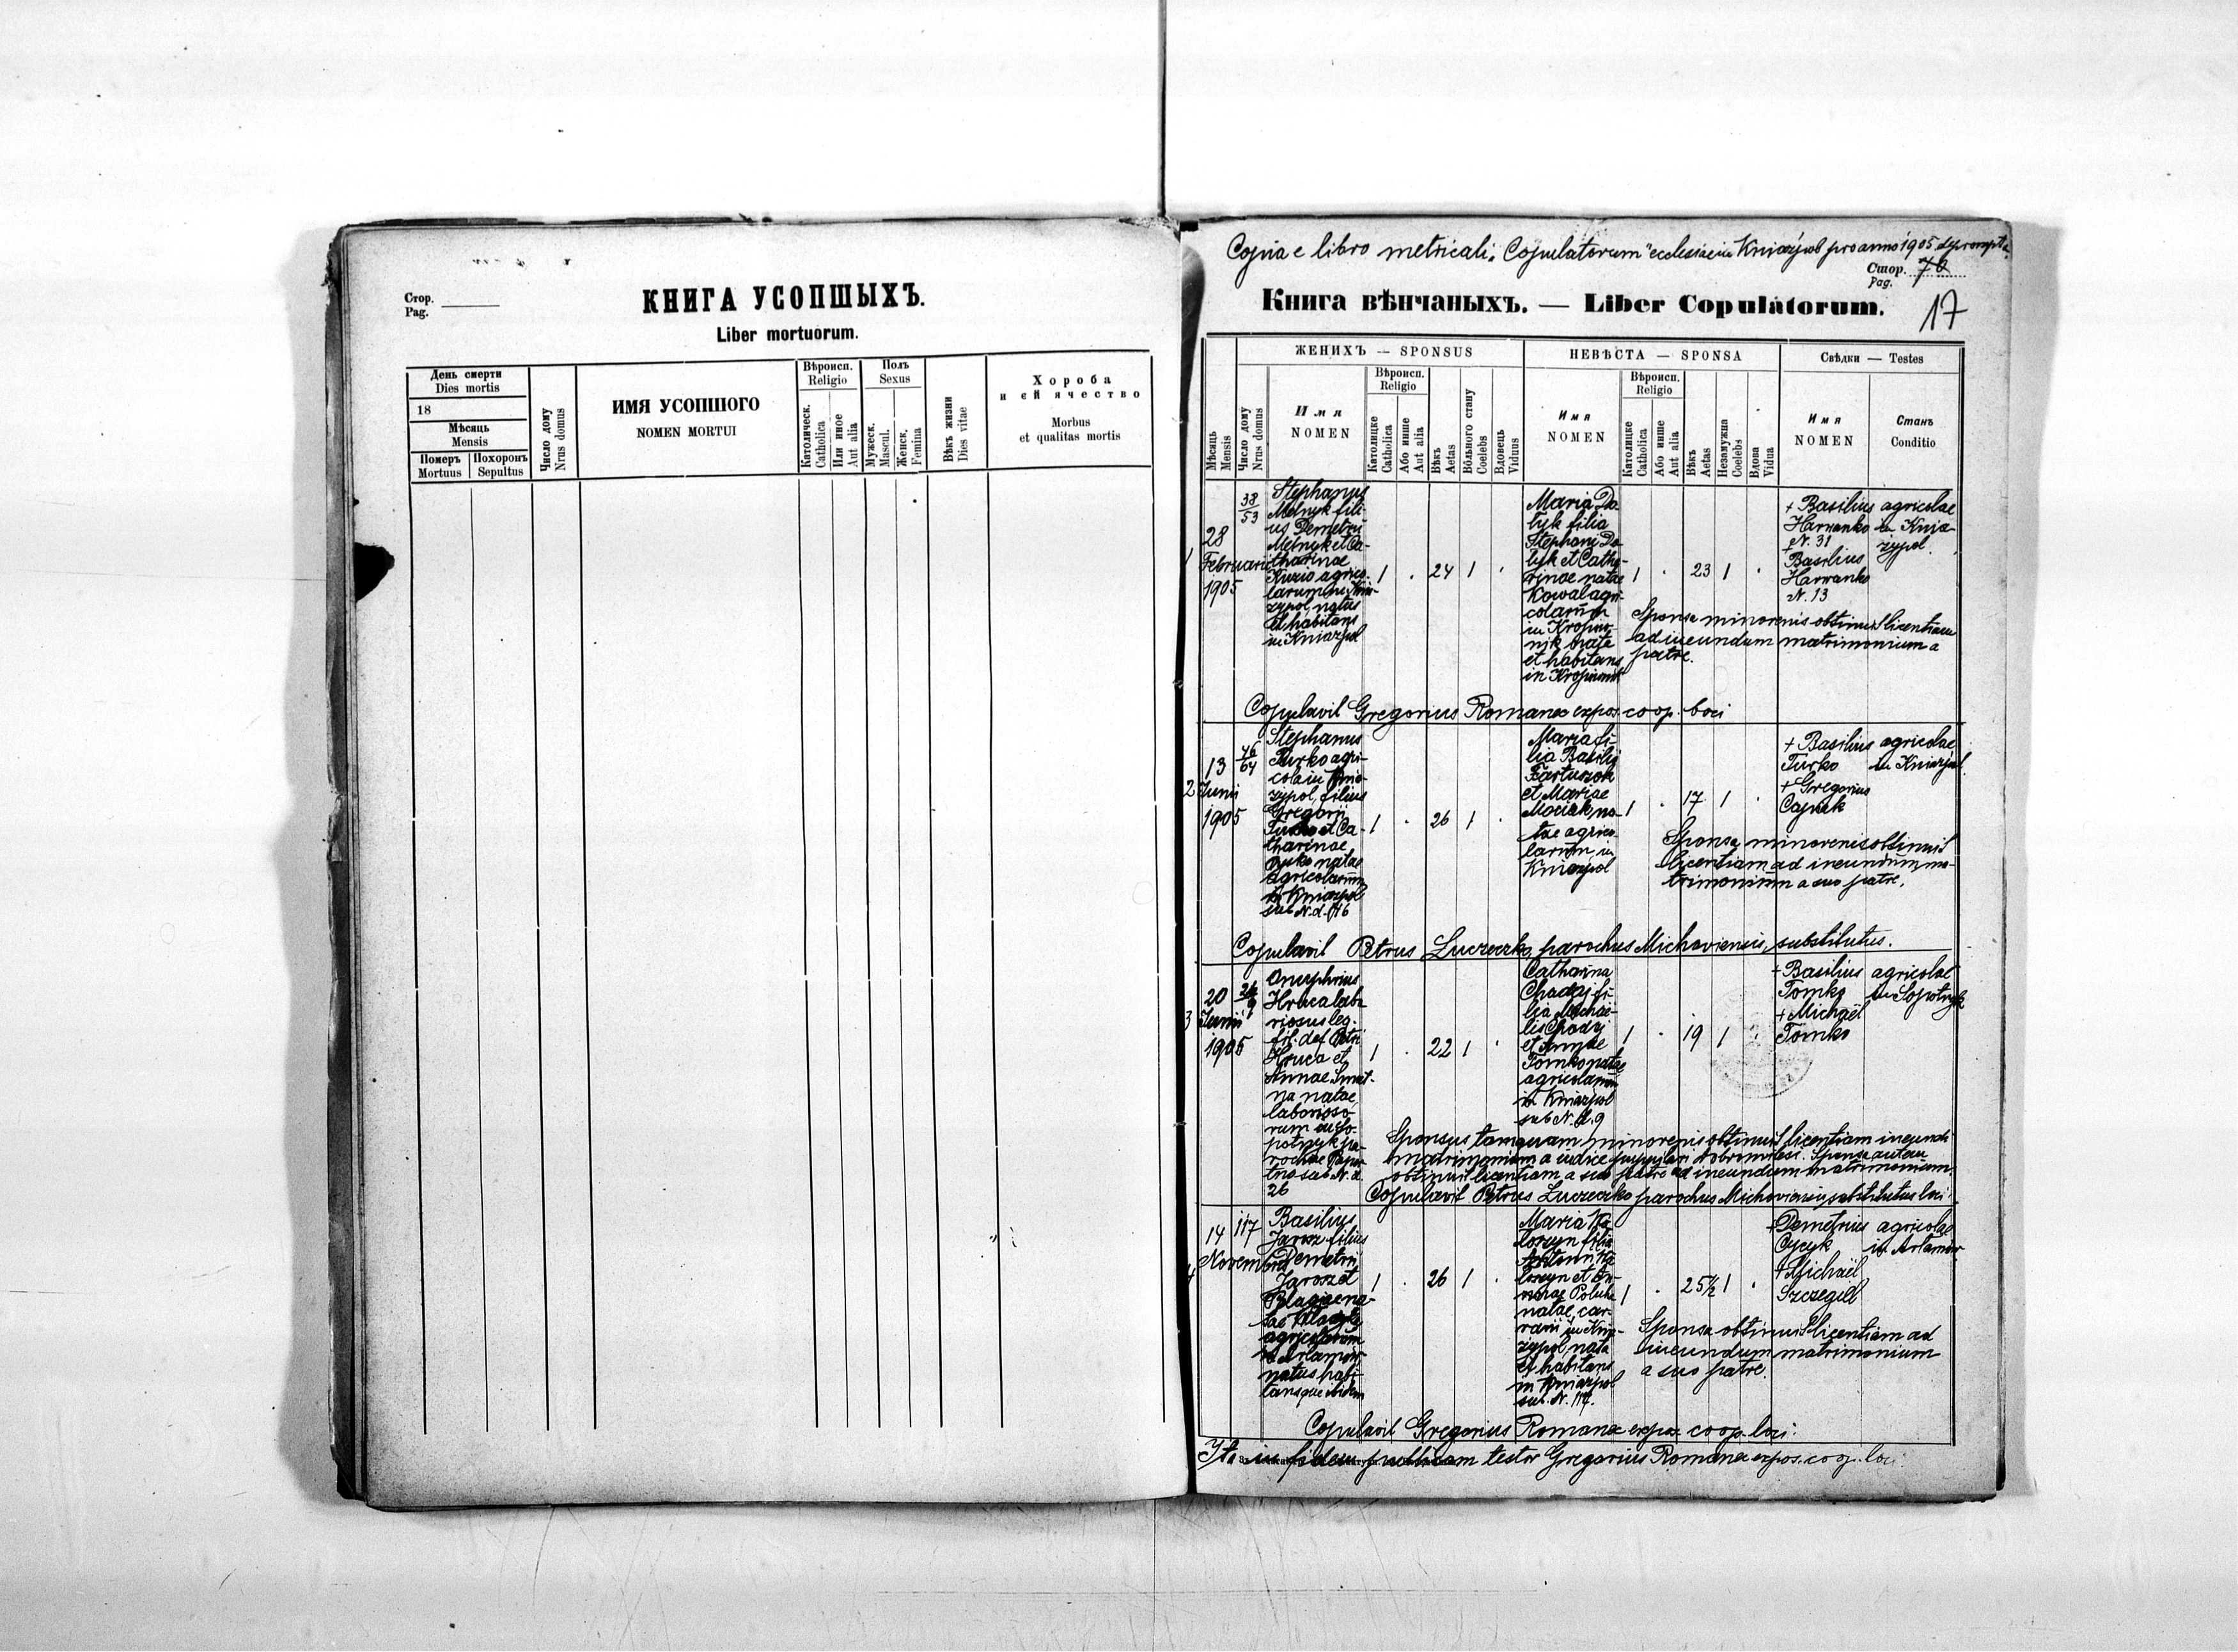 Стор.
Pag.
КНИГА УСОПШЫХЪ.
Liber mortuorum.
День смерти
Dies mortis
18
Мѣсяць
Mensis
Померъ
Mortuus
Похоронъ
Sepultus
Число дому
Nrus domus
ИМЯ УСОПШОГО
NOMEN MORTUI
Вѣроисп.
Religio
Католическ.
Catholica
Или иное
Aut alia
Полъ
Sexus
Мужеск.
Mascul.
Женск.
Femina
Вѣкъ жизни
Dies vitae
Хороба
и єй ячество
Morbus
et qualitas mortis
Copia e libro metricali "Copulatorum" ecclesiae in Kniażpol pro anno 1905 deprompta
Стор. 76
Pag.
17
Книга вѣнчаныхъ. — Liber Copulatorum.
Мѣсяць
Mensis
Число дому
Nrus domus
ЖЕНИХЪ — SPONSUS
Имя
NOMEN
Вѣроисп.
Religio
Католицке
Catholica
Або инше
Aut alia
Вѣкъ
Aetas
Вольного стану
Coelebs
Вдовець
Viduus
НЕВѢСТА — SPONSA
Имя
NOMEN
Вѣроисп.
Religio
Католицке
Catholica
Або инше
Aut alia
Вѣкъ
Aetas
Незамужна
Coelebs
Вдова
Vidua
Свѣдки — Testes
Имя
NOMEN
Станъ
Conditio
1
28
Februarii
1905
38
53
Stephanus
Melnyk fili-
us Demetrii
Melnyk et Ca-
tharinae
Kuzio agrico-
larum in Knia-
zypol, natus
et habitans
in Kniazpol
1 . 24 1 .
Maria Da-
lyk filia
Stephani Da-
lyk et Catha-
rinae natae
Kowal agri-
colarum
in Kropiw-
nik nata
et habitans
in Kropiwnik
1 . 23 1 .
+ Basilius
Harwanko
N. 31
+ Basilius
Harwanko
N. 13
agricolae
in Knia-
zypol.
Sponsa minorenis obtinuit licentiam
ad ineundum matrimonium a
patre.
Copulavit Gregorius Romanex expos. coop. loci
2
13
Junii
1905
46
64
Stephanus
Turko agri-
cola in Knia-
zypol, filius
Gregorii
Turko et Ca-
tharinae
natae
agricolarum
in Kniazpol
sub N. d. 46
1 . 26 1 .
Maria fi-
lia Basilii
Fartuszok
et Mariae
Maciak na-
tae agrico-
larum in
Kniazpol
1 . 17 1 .
+ Basilius
Turko
+ Gregorius
Capak
agricolae
in Kniazpol.
Sponsa minorenis obtinuit
licentiam ad ineundum ma-
trimonium a suo patre.
Copulavit Petrus Luczeczko, parochus Michoviensis, substitutus.
3
20
Junii
1905
26
9
Onuphrius
Hruca labo
riosus leg.
fil. def. Petri
Hruca et
Annae Smet-
na natae
laborioso-
rum in So-
potnyk pa-
rochiae
sub N. d.
26
1 . 22 1 .
Catharina
Chadzj fi-
lia Michae-
lis Chadzj
et Annae
Tomko natae
agricolarum
in Kniazpol
sub N. d. 9
1 . 19 1 .
+ Basilius
Tomko
+ Michaël
Tomko
agricolae
in Sopotnyk
Sponsus tamquam minorenis obtinuit licentiam ineundi
matrimonium a iudice pupillari Dobromilesi. Sponsa autem
obtinuit licentiam a suo patre ad ineundum matrimonium.
Copulavit Petrus Luczeczko parochus Michoviensis substitutus loci.
4
14
Novembris
117
Basilius
Jarosz filius
Demetrii
Jarosz et
Pelagiae na-
tae
agricolarum
in Artamów
natus habi-
tansque ibidem
1 . 26 1 .
Maria Ko
loszyn filia
Antonii Ko
loszyn et An-
natae
in Knia-
zypol, nata
et habitans
in Kniazpol
sub. N. 117.
1 . 25½ 1 .
+ Demetrius
Cycyk
+ Michaël
Szczegiel
agricolae
in Artamów
Sponsa obtinuit licentiam ad
ineundum matrimonium
a suo patre.
Copulavit Gregorius Romanex expos. coop. loci.
Ita in fidem publicam testor Gregorius Romanex expos. coop. loci.